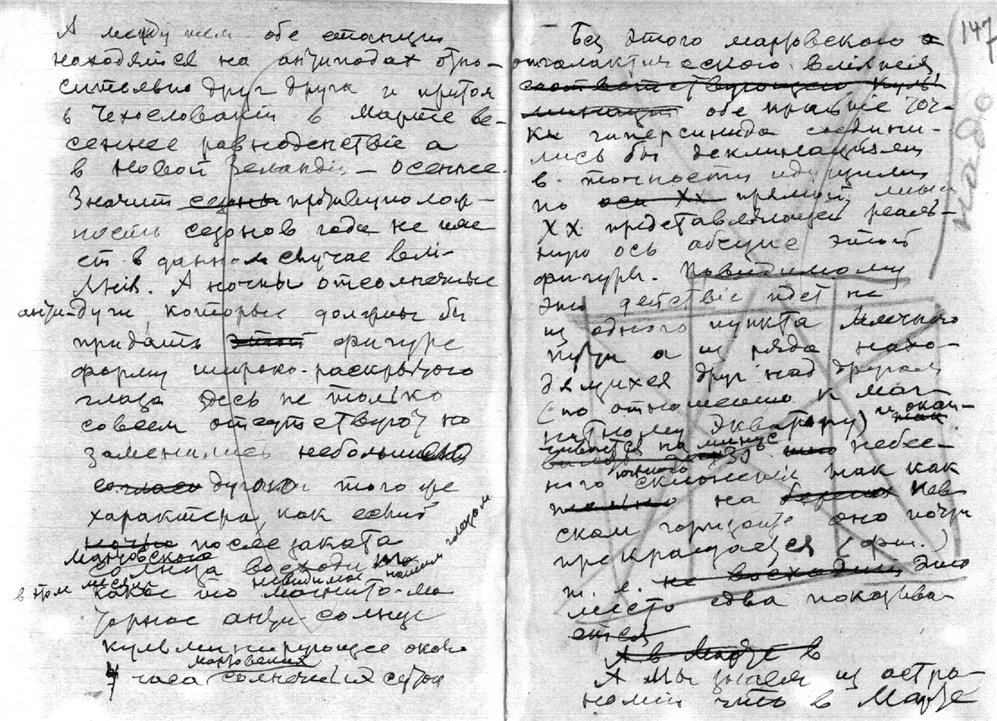 А между тем обе станции
находятся на антиподах отно-
сительно друг друга и притом
в Чехословакии в Марте ве-
сеннее равноденствие а
в Новой Зеландии – осеннее.
Значит сезоны противуполож-
ность сезонов года не име
ет в данном случае влі-
янія. А ночные отсолнечные
анти-дуги, которые должны бы
придать этой фигуре
форму широко-раскрытого
глаза здесь не только
совсем отсутствуют но
заменились небольшими
дугами того же
характера, как если б
ночью после заката
Мартовского
солнца восходило
в этом месяце невидимое нашим глазом
какое то магнито-
черное анти-солнце
кульминирующее около
мартовских
7 часа солнечных суток
147
надо
Без этого мартовского
галактического вліянія
соответствующей куль
минации обе правые точ-
ки гиперсинида соедини-
лись бы деклинациями
в точности идущими
по оси XX прямой линии
XX представляющей реаль-
ную ось абсцис этой
фигуры. Повидимому
Это действіе идет не
из одного пункта Млечного
пути а из ряда нахо-
дящихся друг над другом
(по отношению к маг-
нитному экватору) и окан-
чивается на минус
южного 30° небес-
ного склонения так как
на Нев-
ском горизонте оно почти
прекращается (фиг. )
т. е. не восходит Это
место едва показыва-
ется
А в Марте в
А мы знаем из астро-
номии что в Марте